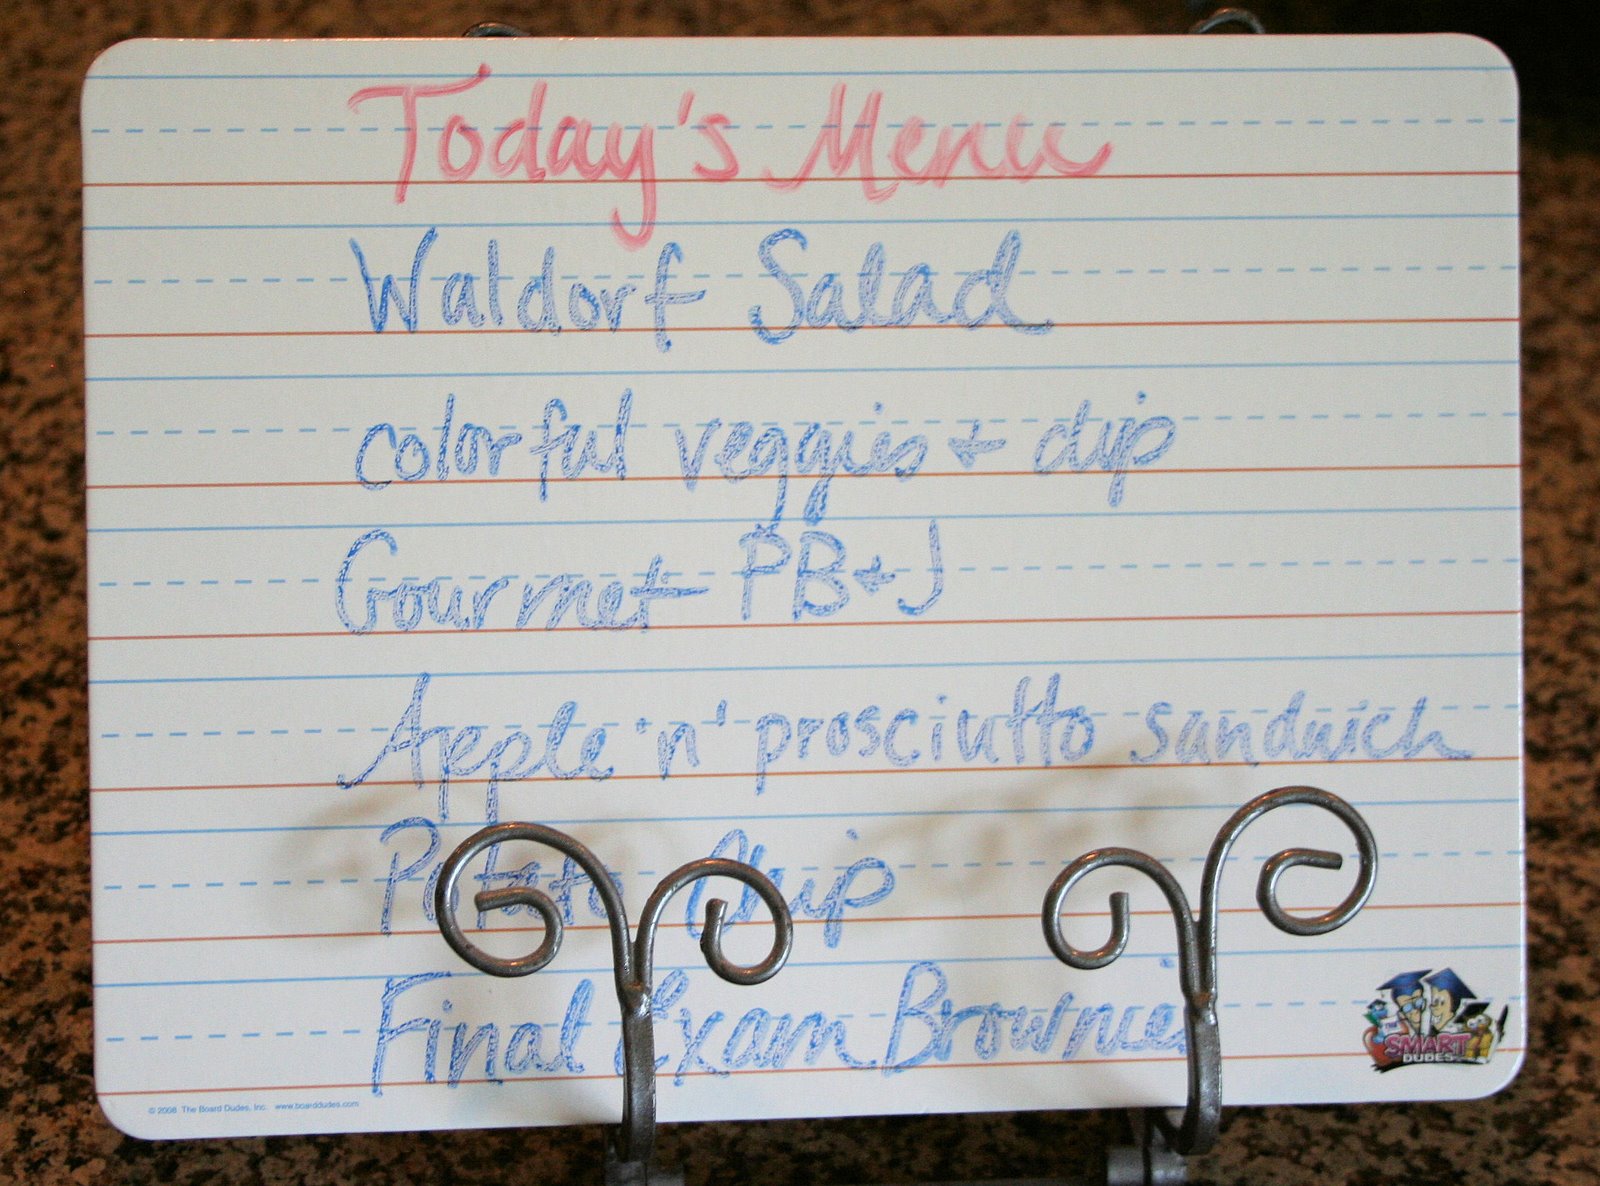 Today's Menu
Waldorf Salad
colorful veggies + dip
Gourmet PB+J
Apple 'n' prosciutto sandwich
Potato Chip
Final Exam Brownies
THE
SMART
DUDES
© 2008 The Board Dudes, Inc. www.boarddudes.com